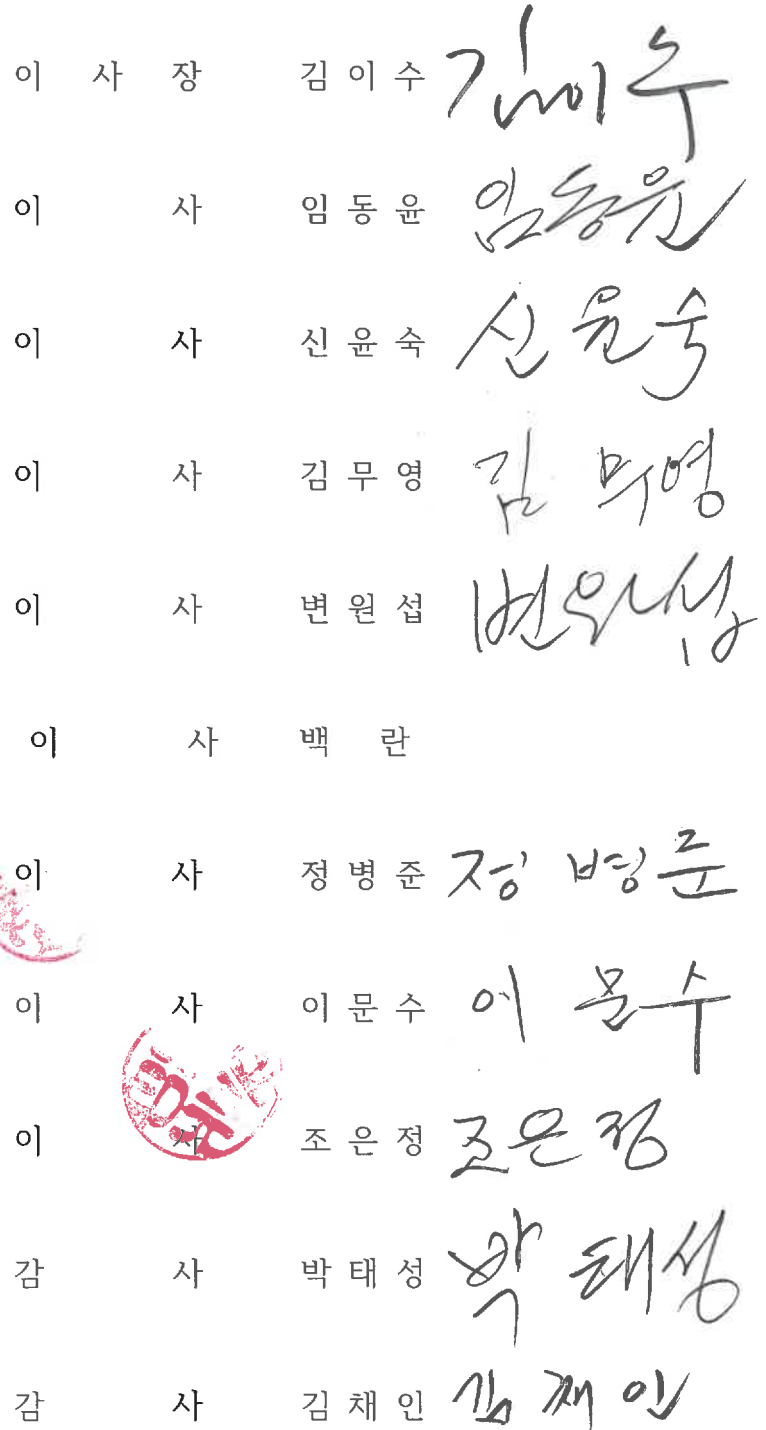 이 사 장 김 이 수 김이수
이 사 임 동 윤 임동윤
이 사 신 윤 숙 신윤숙
이 사 김 무 영 김 무영
이 사 변 원 섭 변원섭
이 사 백 란
이 사 정 병 준 정 병준
이 사 이 문 수 이 문수
이 사 조 은 정 조은정
감 사 박 태 성 박 태성
감 사 김 채 인 김 채 인